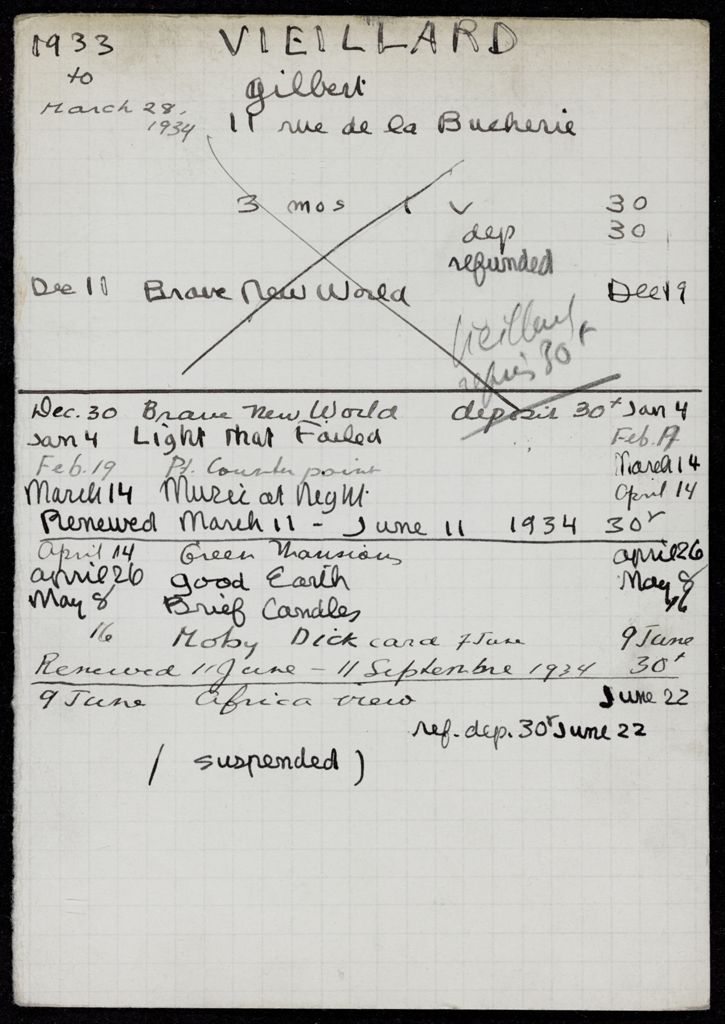 1933 VIEILLARD
to Gilbert
March 28, 1934
11 rue de la Bucherie
3 mos 1 v 30
dep 30
refunded
Dec 11 Brave New World Dec 19
Vieillard
30 f
Dec. 30 Brave New World deposit 30f Jan 4
Jan 4 Light that Failed Feb. 19
Feb. 19 Pt. Counter point March 14
March 14 Music at Night April 14
Renewed March 11 - June 11 1934 30f
April 14 Green Mansions april 26
april 26 Good Earth May 8
May 8 Brief Candles 16
16 Moby Dick card 7 June 9 June
Renewed 11 June - 11 Septembre 1934 30f
9 June Africa view June 22
ref. dep. 30f June 22
( suspended )